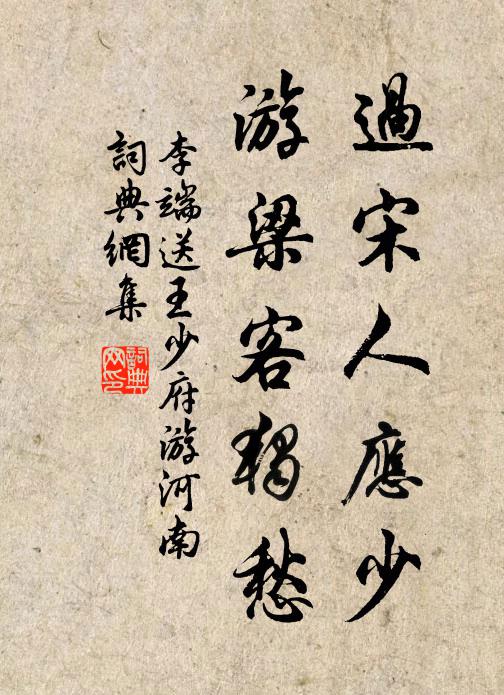 過宋人應少
游梁客獨愁
李端送王少府游河南
詞典網集
詞典
网印